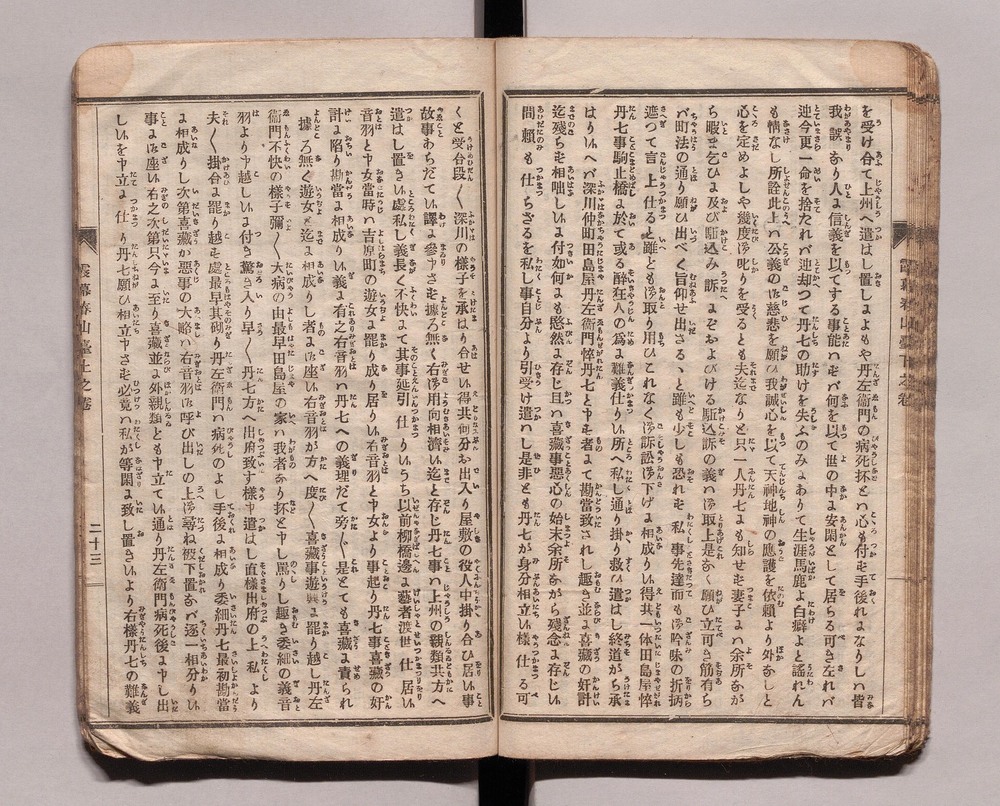 を受け合て上州へ遣はし置しにまよもや丹左衛門の病死抔とハ心も付ず手後れとなりしハ皆
我誤より人に信義を以てする事能ハずハ何を以て世の中に安閑として居らる可き左れバ
迚今更一命を捨たれバ迚却つて丹七の助けを失ふのみにありて生涯馬鹿よ白癖よと謡れん
も情なし所詮此上ハ公義の御慈悲を願ひ我誠心を以て天神地神の應護を依頼より外なしと
心を定めよしや幾度御叱りを受るとも夫迄なりと只一人丹七にも知せず妻子にハ余所なが
ら暇まごひに及び駈込み訴
バ町法の通り願ひ出べく旨仰せ出さるゝと雖も少しも恐れず私事先達而も御吟味の折柄
遮つて言上仕ると雖ども御取り用ひこれなく御訴訟御下げに相成りしハ得共一体田島屋悴
丹七事駒止橋に於て或る醉狂人の為に難義仕りし所へ私し通り掛り救ひ遣はし終道がら承
はりしへバ深川仲町田島屋丹左衛門悴丹七と申す者にて勘當致され
迄残らず相咄し
問頼も仕つらざるを私し事自分より引受け遣しし是非とも丹七が身分相立し様仕つる可
くと受合段〳〵深川の様子を承はり合せし得共何分お出入り屋敷の役人中掛り合ひ居し事
故事あらだてし譯に參り申さず據ろ無く右御用向相濟し迄と存じ丹七事ハ上州の親類共方へ
遣はし置きし處私し義長く不快にて其事延引仕りしうち以前柳橋邊に藝者渡世仕居し
音羽と申女當時ハ吉原町の遊女に罷り成り居りし右音羽と申女より事起り丹七事喜藏の奸
計に陷り勘當に相成りし義に有之右音羽ハ丹七への義理だて旁〳〵是とても喜藏に責られ
據ろ無く遊女に迄に相成りし者に御座し右音羽が方へ度〳〵喜藏事遊興に罷り越し丹左
衛門不快の様子彌〳〵大病の由最早田島屋の家ハ我者より抔と申し罵りし趣き委細の義音
羽より申越しし付き驚き入り早〳〵丹七方へ出府致す様申遣はし直樣出府の上私より
夫〳〵掛合に罷り越し處最早其砌り丹左衛門ハ病死のよし手後に相成り委細丹七最初勘當
に相成りし次第喜藏が惡事の大略ハ右音羽御呼び出しの上御尋ね被下置なバ逐一相分りし
事に御座し右之次第只今に至り喜藏並に外親類とも申立てし通り丹左衛門病死後に申し出
しし申立に仕り丹七願ひ相立申さず必竟ハ私が等閑に致し置きしより右樣丹七の難義
霞幕春山臺下之巻
霞幕春山臺上之巻
二十三